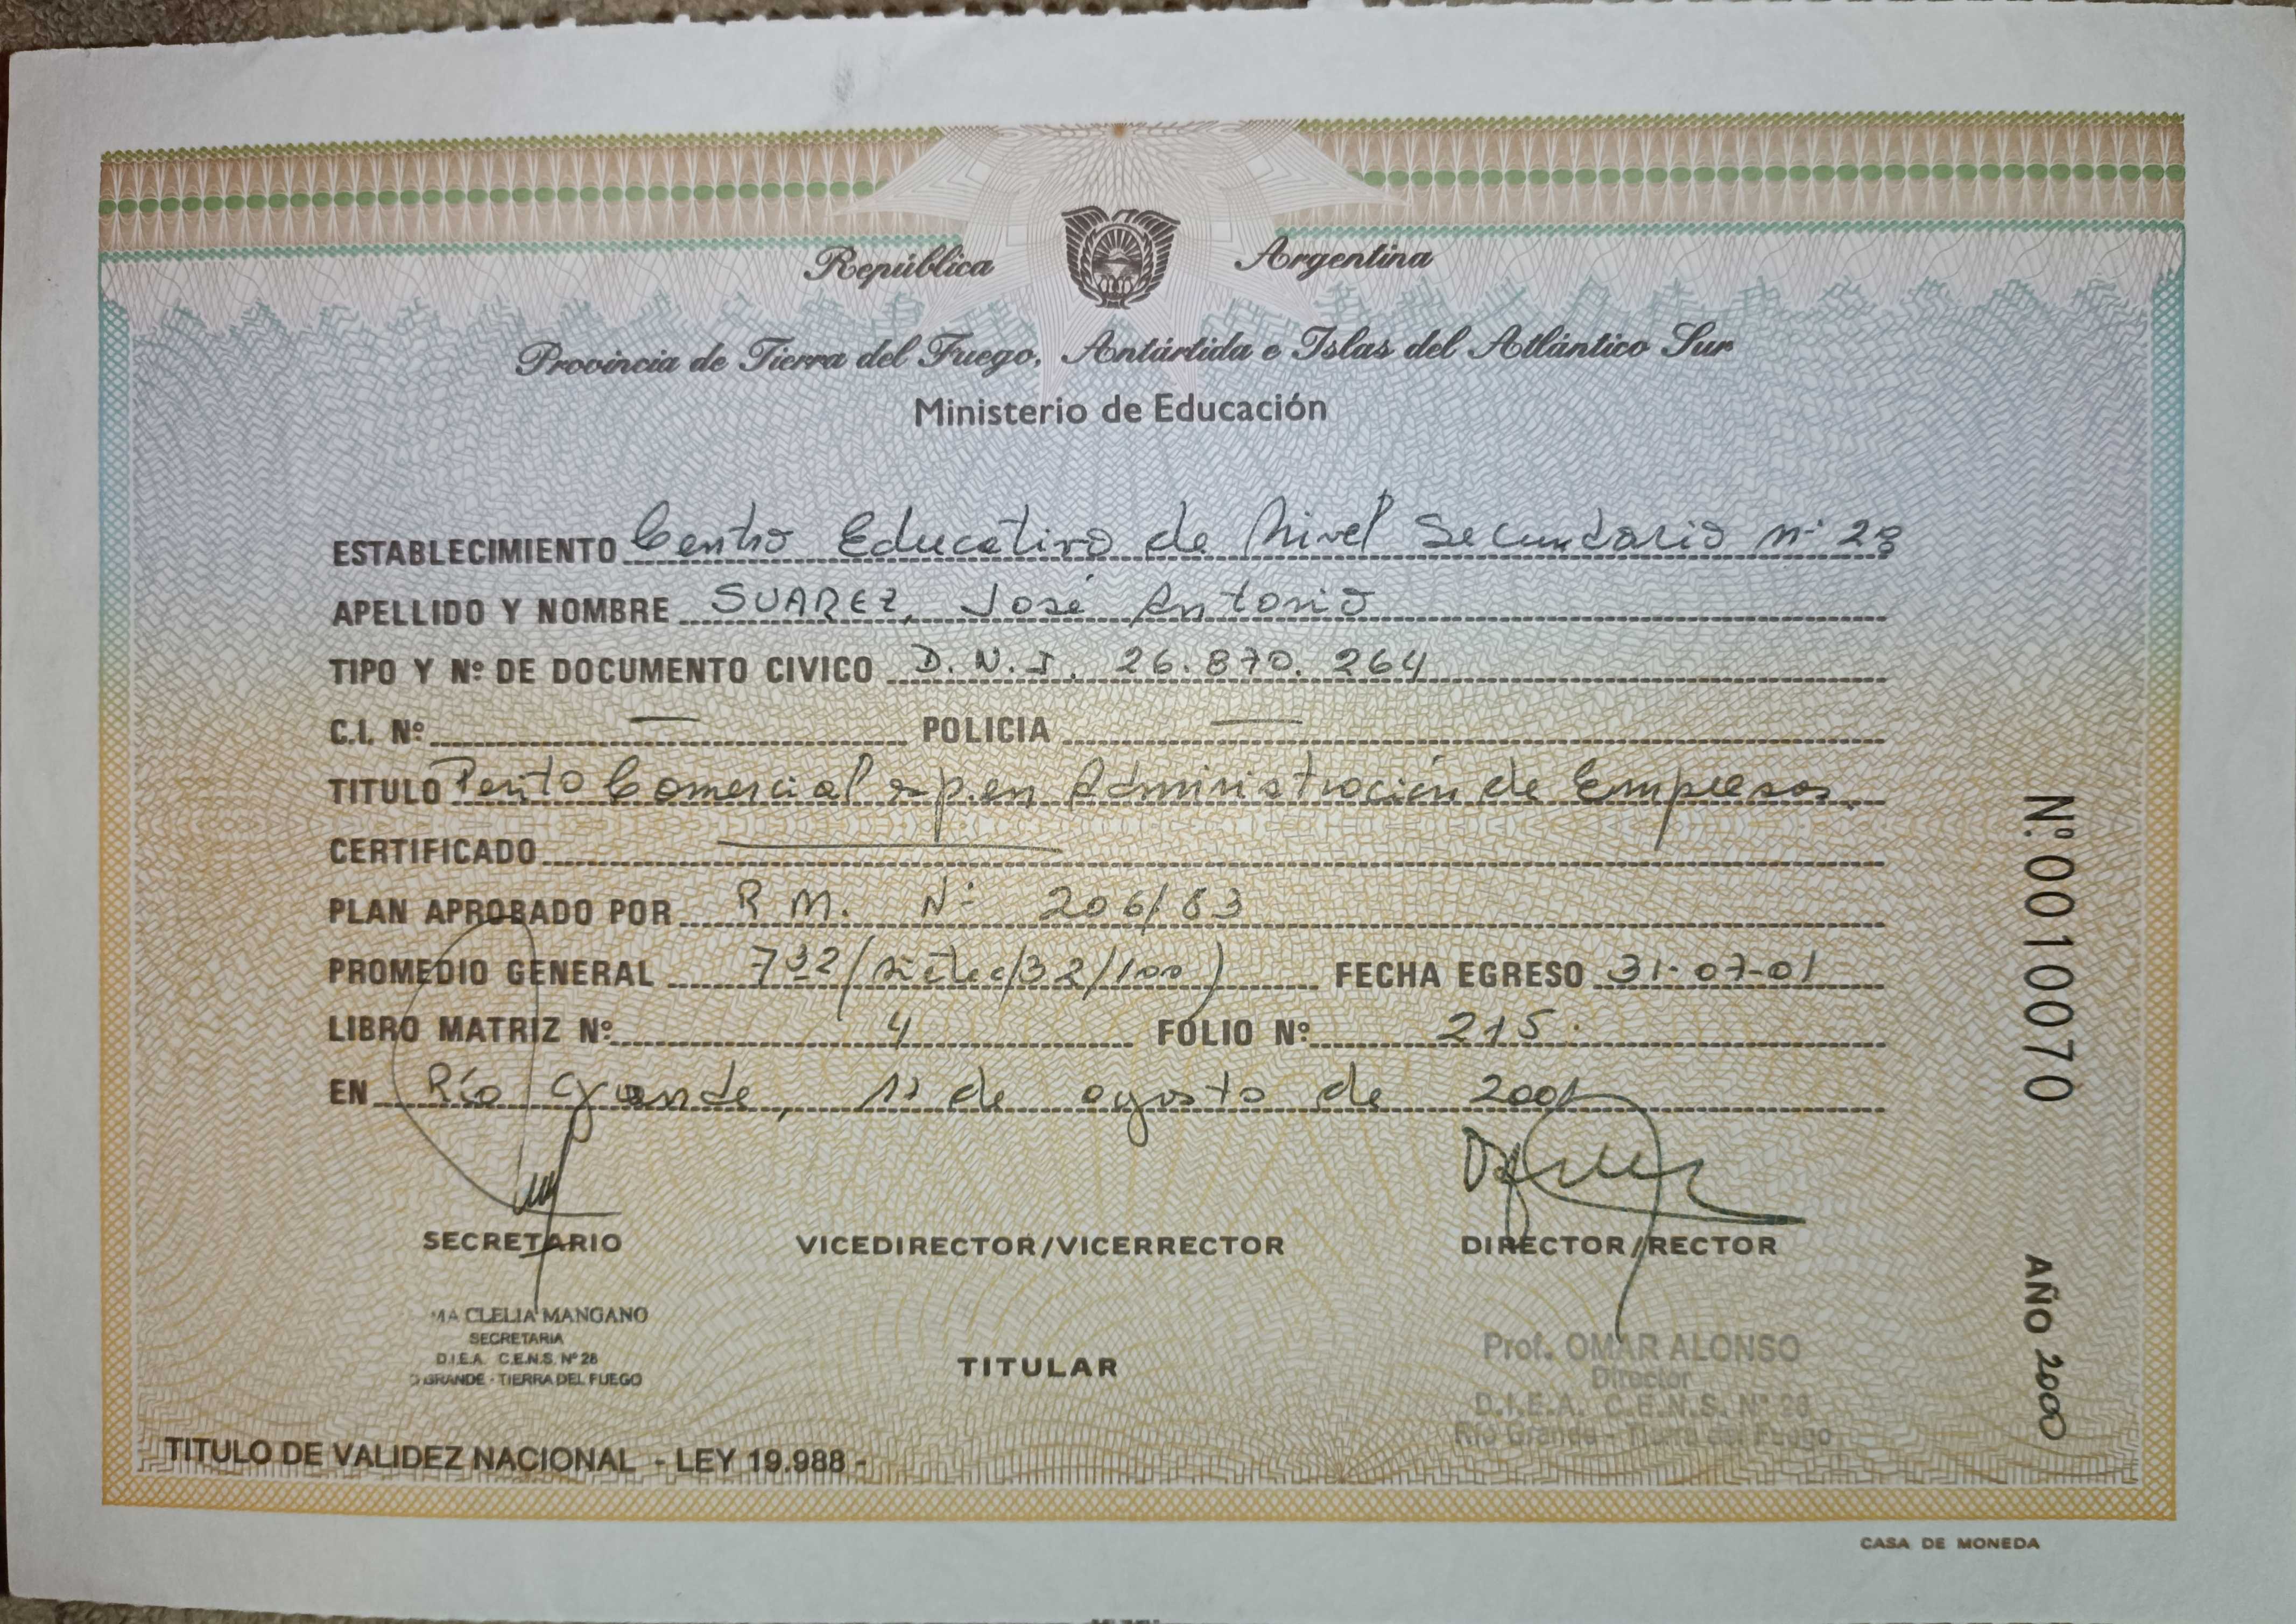 República Argentina
Provincia de Tierra del Fuego, Antártida e Islas del Atlántico Sur
Ministerio de Educación
ESTABLECIMIENTO Centro Educativo de Nivel Secundario nº 28
APELLIDO Y NOMBRE SUAREZ, José Antonio
TIPO Y Nº DE DOCUMENTO CIVICO D.N.I. 26.870.264
C.I. Nº — POLICIA —
TITULO Perito Comercial esp. en Administración de Empresas.
CERTIFICADO —
PLAN APROBADO POR R.M. Nº 206/83
PROMEDIO GENERAL 7 32 (siete c/32/100) FECHA EGRESO 31-07-01
LIBRO MATRIZ Nº 4 FOLIO Nº 215.
EN Río Grande, de agosto de 2001
SECRETARIO VICEDIRECTOR/VICERRECTOR DIRECTOR/RECTOR
MA CLELIA MANGANO
SECRETARIA
D.I.E.A. C.E.N.S. Nº 28
GRANDE - TIERRA DEL FUEGO
TITULAR
Prof. OMAR ALONSO
Director
D.I.E.A. C.E.N.S. Nº 28
Río Grande - Tierra del Fuego
TITULO DE VALIDEZ NACIONAL - LEY 19.988 -
Nº 0010070
AÑO 2000
CASA DE MONEDA